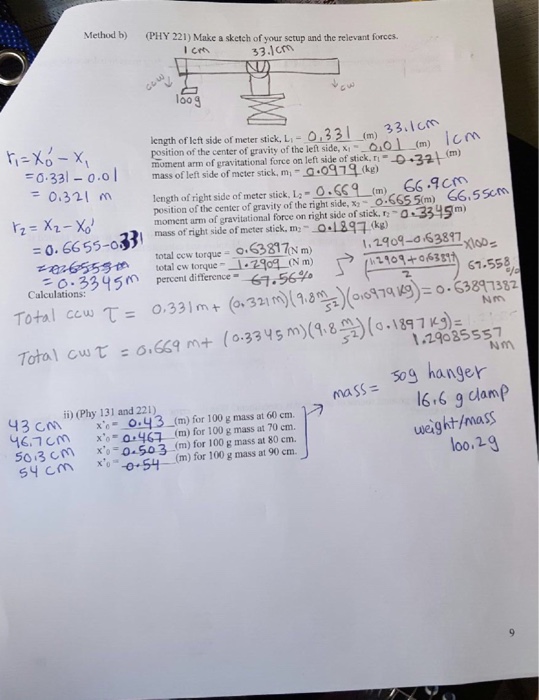 Method b) (PHY 221) Make a sketch of your setup and the relevant forces.
1 cm 33.1cm
ccw cw
100g
length of left side of meter stick, L₁ = 0.331 (m) 33.1cm
position of the center of gravity of the left side, x₁ = 0.01 (m) 1cm
moment arm of gravitational force on left side of stick, r₁ = 0.321 (m)
mass of left side of meter stick, m₁ = 0.0979 (kg)
r₁ = x₀' - x₁
= 0.331 - 0.01
= 0.321 m
length of right side of meter stick, L₂ = 0.669 (m) 66.9cm
position of the center of gravity of the right side, x₂ = 0.6655(m) 66.55cm
moment arm of gravitational force on right side of stick, r₂ = 0.3345 m)
mass of right side of meter stick, m₂ = 0.1897 (kg)
r₂ = x₂ - x₀'
= 0.6655-0.331
= 0.3345m
total ccw torque = 0.63897(N m)
total cw torque = 1.2909 (N m)
percent difference = 67.56%
1.2909-0.63897
(1.2909+0.63897) x100=
2
67.558%
Calculations:
Total ccw τ = 0.331m + (0.321m)(9.8 m/s²)(0.0979 kg) = 0.63897382 Nm
Total cw τ = 0.669 m + (0.3345 m)(9.8 m/s²)(0.1897 kg) = 1.29085557 Nm
ii) (Phy 131 and 221)
43 cm x'₀ = 0.43 (m) for 100 g mass at 60 cm.
46.7cm x'₀ = 0.467 (m) for 100 g mass at 70 cm.
50.3cm x'₀ = 0.503 (m) for 100 g mass at 80 cm.
54 cm x'₀ = 0.54 (m) for 100 g mass at 90 cm.
mass = 50g hanger
16.6 g clamp
weight/mass
100.2g
9